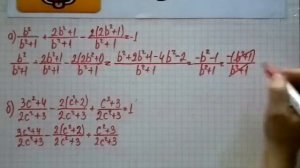 а) b²/(b²+1) + (2b²+1)/(b²+1) - 2(2b²+1)/(b²+1) = -1
b²/(b²+1) + (2b²+1)/(b²+1) - 2(2b²+1)/(b²+1) = (b²+2b²+1-4b²-2)/(b²+1) = (-b²-1)/(b²+1) = -1(b²+1)/(b²+1)
б) (3c²+4)/(2c²+3) - 2(c²+2)/(2c²+3) + (c²+3)/(2c²+3) = 1
(3c²+4)/(2c²+3) - 2(c²+2)/(2c²+3) + (c²+3)/(2c²+3)